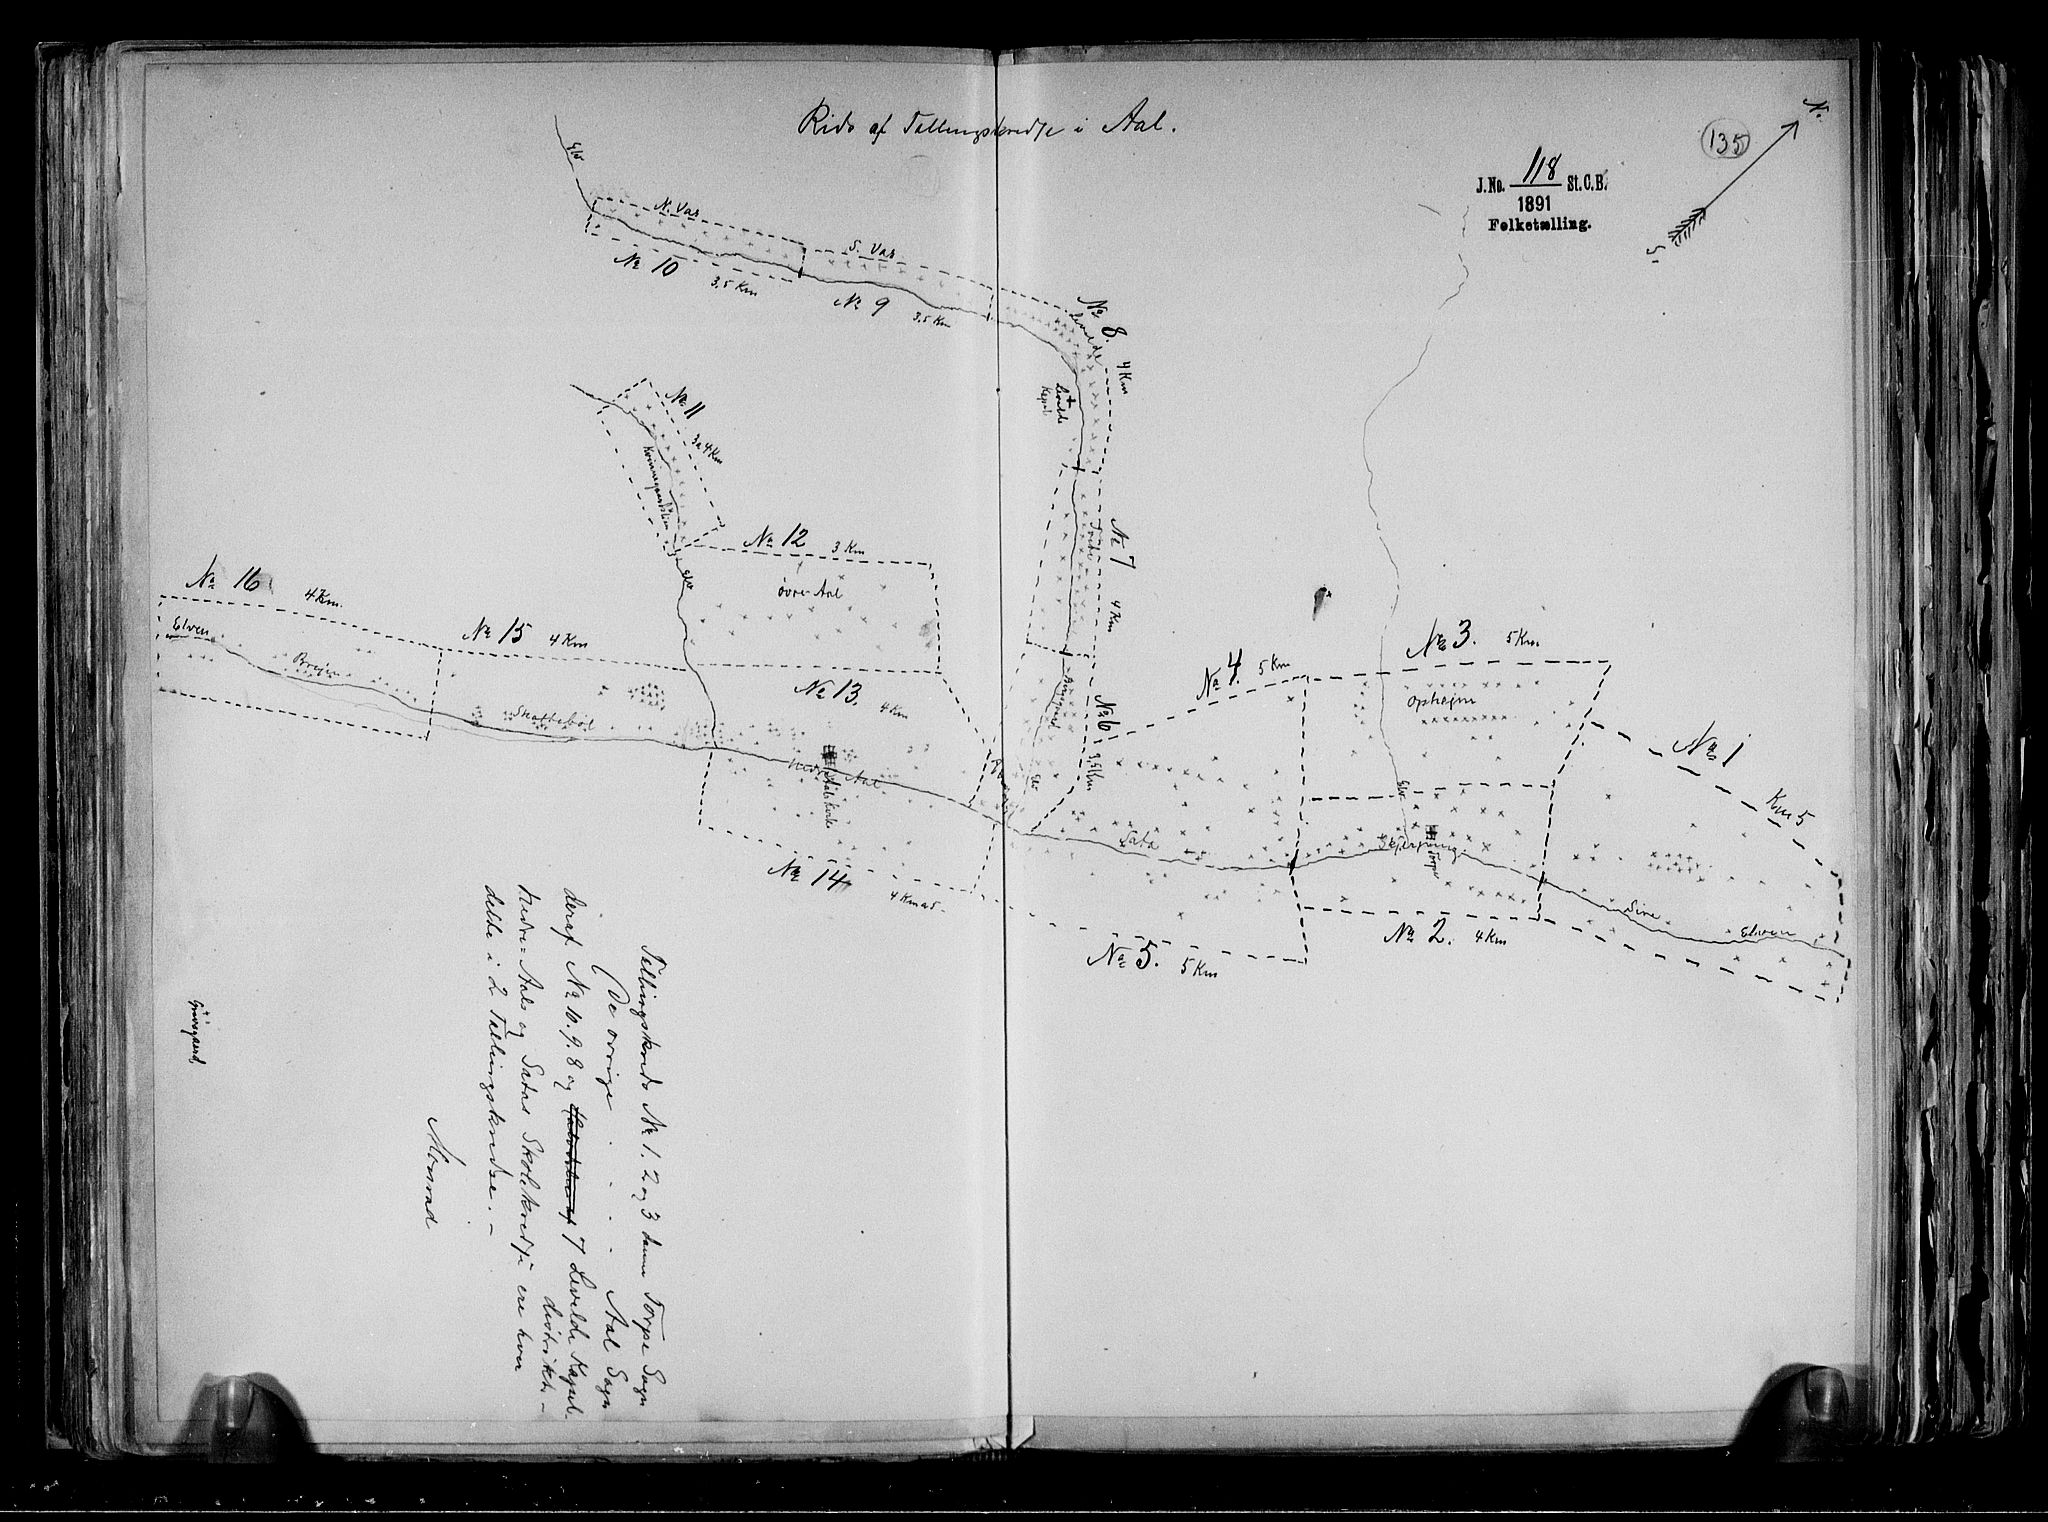 Rids af Tællingskredse i Aal.
135
J.No. 118 St.C.B.
1891
Folketælling.
N.
S.
Elv
N. Vas
S. Vas
No 10
3,5 Km
No 9
3,5 Km
No 8.
Levelde
4 Km
Levelde
Kapel
No 11
3 a 4 Km
No 12
3 Km
Elv
øvre Aal
No 7
4 Km
No 16
4 Km.
Elven
No 15
4 Km
No 13.
4 Km
No 6
3,5 Km
No 4.
5 Km
No 3.
5 Km
opheim
No 1
Km 5
Skottebøl
Nedre Aal
Aals Kirke
Elv
Sata
Elv
Torpe
No 14
4 Km
No 5.
5 Km
No 2.
4 Km
Elven
Tællingskreds No 1. 2 og 3 danne Torpe Sogn
De øvrige . . . . Aal Sogn
deraf No 10. 9. 8 og 7 Levelde Kapel-
distrikt. -
Nedre-Aals og Satas Skolekredse ere hver
delte i 2 Tællingskredse. -